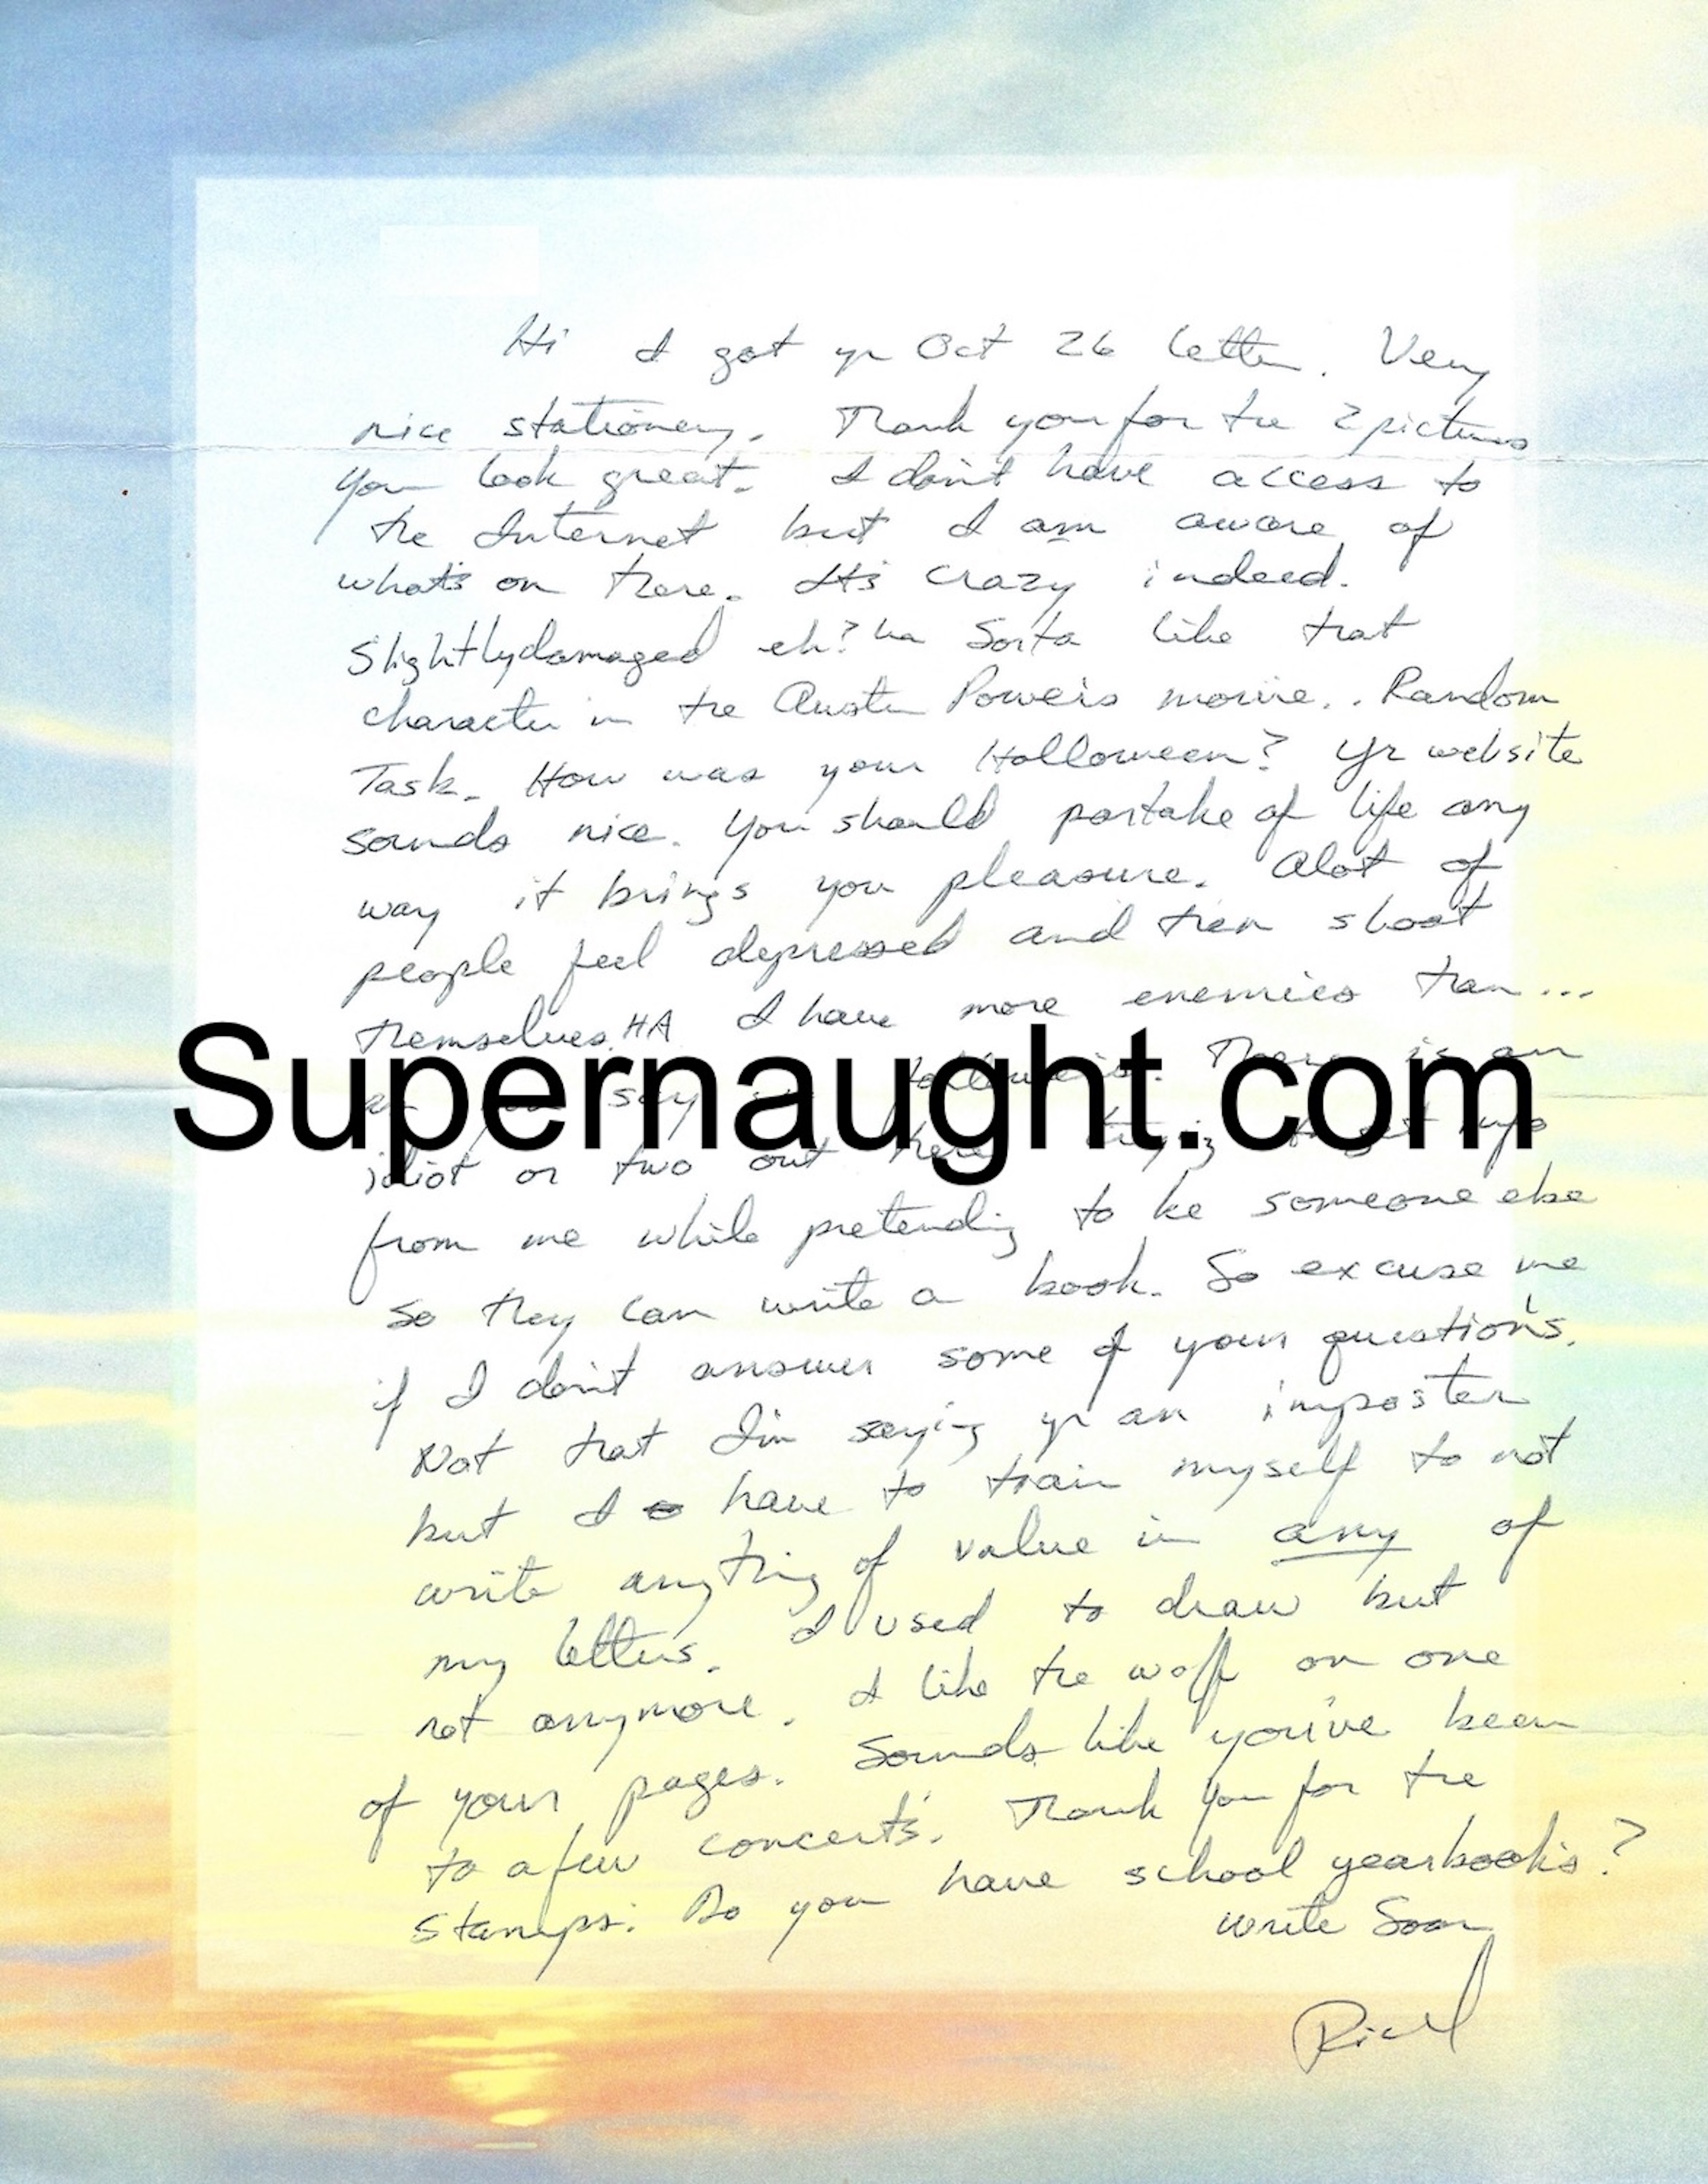 Hi I got yr Oct 26 letter. Very
nice stationery. Thank you for the 2 pictures
you look great. I don't have access to
the Internet but I am aware of
what's on there. It's crazy indeed.
Slightlydamaged eh? ha Sorta like that
character in the Austin Powers movie.. Random
Task. How was your Halloween? Yr website
sounds nice. You should partake of life any
way it brings you pleasure. Alot of
people feel depressed and then shoot
themselves. HA I have more enemies than...
say followers. There is an
Supernaught.com
idiot or two out there trying to get
from me while pretending to be someone else
so they can write a book. So excuse me
if I don't answer some of your questions.
Not that I'm saying yr an imposter
but I have to train myself to not
write anything of value in any of
my letters. I used to draw but
not anymore. I like the wolf on one
of your pages. Sounds like you've been
to a few concerts. Thank you for the
stamps. Do you have school yearbooks?
write Soon